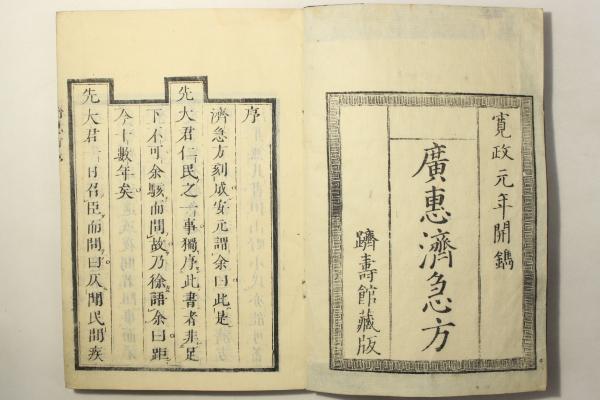 寛政元年開鐫
廣惠濟急方
躋壽館藏版
序
濟急方刻成安元謂余曰此是
先大君仁民之一事獨序此書者非足
下不可余駭而問故乃徐語余曰距
今十數年矣
先大君一日召臣而問曰仄聞民間疾